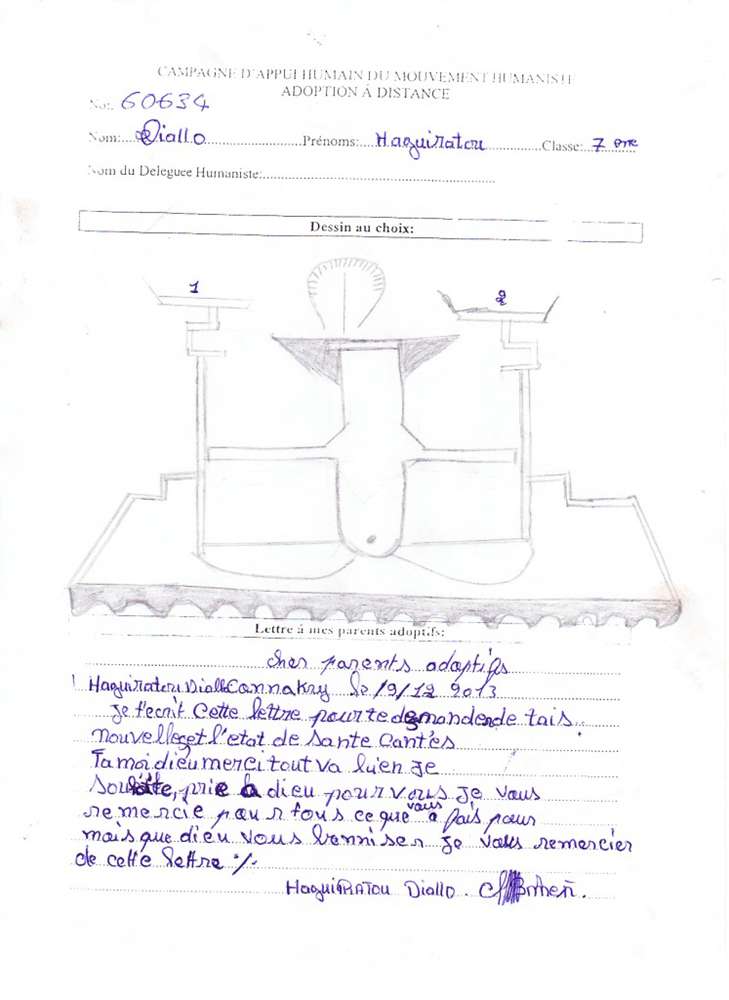 CAMPAGNE D'APPUI HUMAIN DU MOUVEMENT HUMANISTE
ADOPTION Á DISTANCE
No: 60634
Nom: Diallo Prénoms: Haguiratou Classe: 7 eme
Nom du Deleguee Humaniste:
Dessin au choix:
1 2
Lettre á mes parents adoptifs:
cher parents adoptifs
Haguiratou Diallo Connakry le 19/12 2013
Je t'ecrit cette lettre pour te demander de tais
nouvelleset l'etat de sante cantès
Tamoi dieu merci tout va bien je
prie à dieu pour vous je vous
remercie pour tous ce que vous a fais pour
mais que dieu vous benniser je vous remercier
de cette lettre %
HaguiRATOU Diallo.